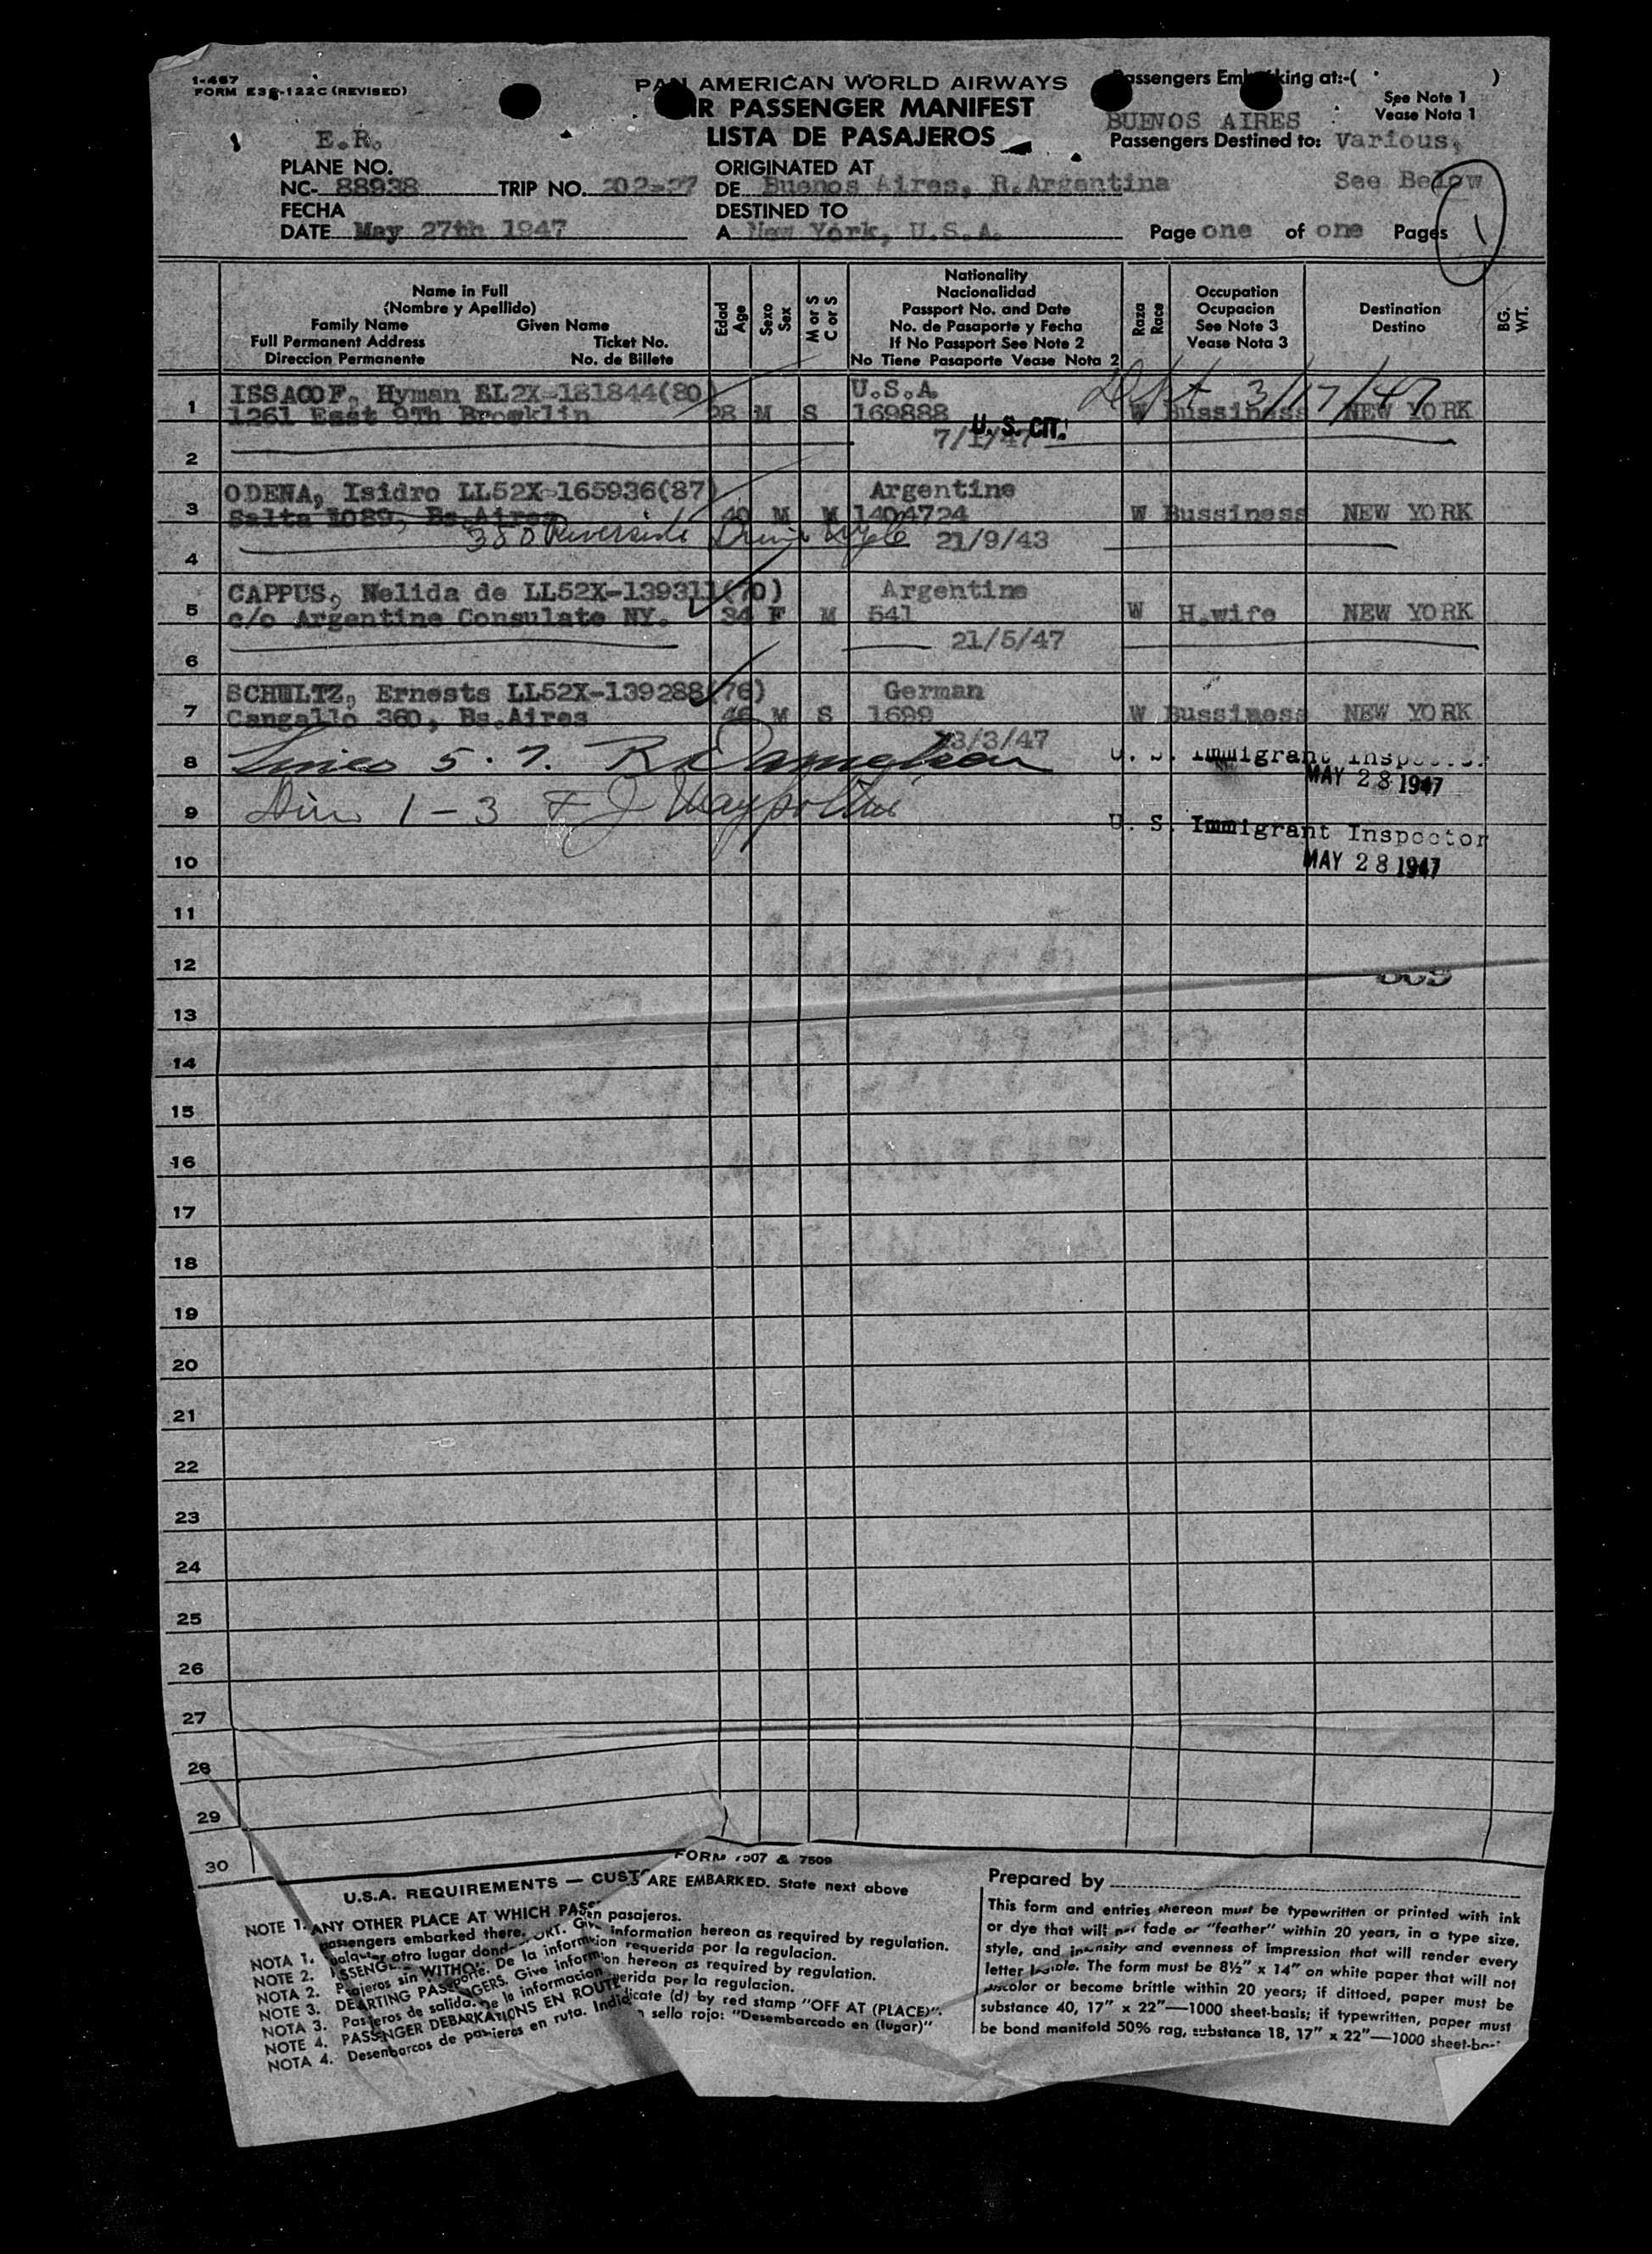 1-467
FORM E36-122C (REVISED)
PAN AMERICAN WORLD AIRWAYS
AIR PASSENGER MANIFEST
LISTA DE PASAJEROS
Passengers Embarking at:-( )
See Note 1
Vease Nota 1
BUENOS AIRES
Passengers Destined to: Various,
See Below
E.R.
PLANE NO.
NC- 88938 TRIP NO. 202-27
ORIGINATED AT
DE Buenos Aires, R.Argentina
FECHA
DATE May 27th 1947
DESTINED TO
A New York, U.S.A.
Page one of one Pages
1
Name in Full
(Nombre y Apellido)
Family Name Given Name
Full Permanent Address Ticket No.
Direccion Permanente No. de Billete
Edad
Age
Sexo
Sex
M or S
C or S
Nationality
Nacionalidad
Passport No. and Date
No. de Pasaporte y Fecha
If No Passport See Note 2
No Tiene Pasaporte Vease Nota 2
Raza
Race
Occupation
Ocupacion
See Note 3
Vease Nota 3
Destination
Destino
BG.
WT.
ISSACOF, Hyman EL2X-181844(80) U.S.A. Dept 3/17/47
1 1261 East 9Th Brooklin 28 M S 169888 W Bussiness NEW YORK
U. S. CIT.
2 7/1/47
ODENA, Isidro LL52X-165936(87) Argentine
3 Salta 1089, Bs.Aires 40 M M 1404724 W Bussiness NEW YORK
380 Riverside Drive 21/9/43
4
CAPPUS, Nelida de LL52X-139311(70) Argentine
5 c/o Argentine Consulate NY. 34 F M 541 W H.wife NEW YORK
6 21/5/47
SCHULTZ, Ernests LL52X-139288(76) German
7 Cangallo 360, Bs.Aires 46 M S 1699 W Bussiness NEW YORK
/3/47
8 Lines 5. 7. U. S. Immigrant Inspector
MAY 28 1947
9 1-3
U. S. Immigrant Inspector
10 MAY 28 1947
11
12
13
14
15
16
17
18
19
20
21
22
23
24
25
26
27
28
29
30
FORM 7507 & 7509
U.S.A. REQUIREMENTS — CUSTOMS
NOTE 1. ANY OTHER PLACE AT WHICH PASSENGERS ARE EMBARKED. State next above
passengers embarked there.
NOTA 1. Cualquier otro lugar donde embarquen pasajeros.
NOTE 2. PASSENGERS WITHOUT PASSPORT. Give information hereon as required by regulation.
NOTA 2. Pasajeros sin pasaporte. De la informacion requerida por la regulacion.
NOTE 3. DEPARTING PASSENGERS. Give information hereon as required by regulation.
NOTA 3. Pasajeros de salida. De la informacion requerida por la regulacion.
NOTE 4. PASSENGER DEBARKATIONS EN ROUTE. Indicate (d) by red stamp "OFF AT (PLACE)".
NOTA 4. Desembarcos de pasajeros en ruta. Indi sello rojo: "Desembarcado en (lugar)"
Prepared by
This form and entries thereon must be typewritten or printed with ink
or dye that will not fade or "feather" within 20 years, in a type size,
style, and intensity and evenness of impression that will render every
letter legible. The form must be 8½" x 14" on white paper that will not
discolor or become brittle within 20 years; if dittoed, paper must be
substance 40, 17" x 22"—1000 sheet-basis; if typewritten, paper must
be bond manifold 50% rag, substance 18, 17" x 22"—1000 sheet-basis